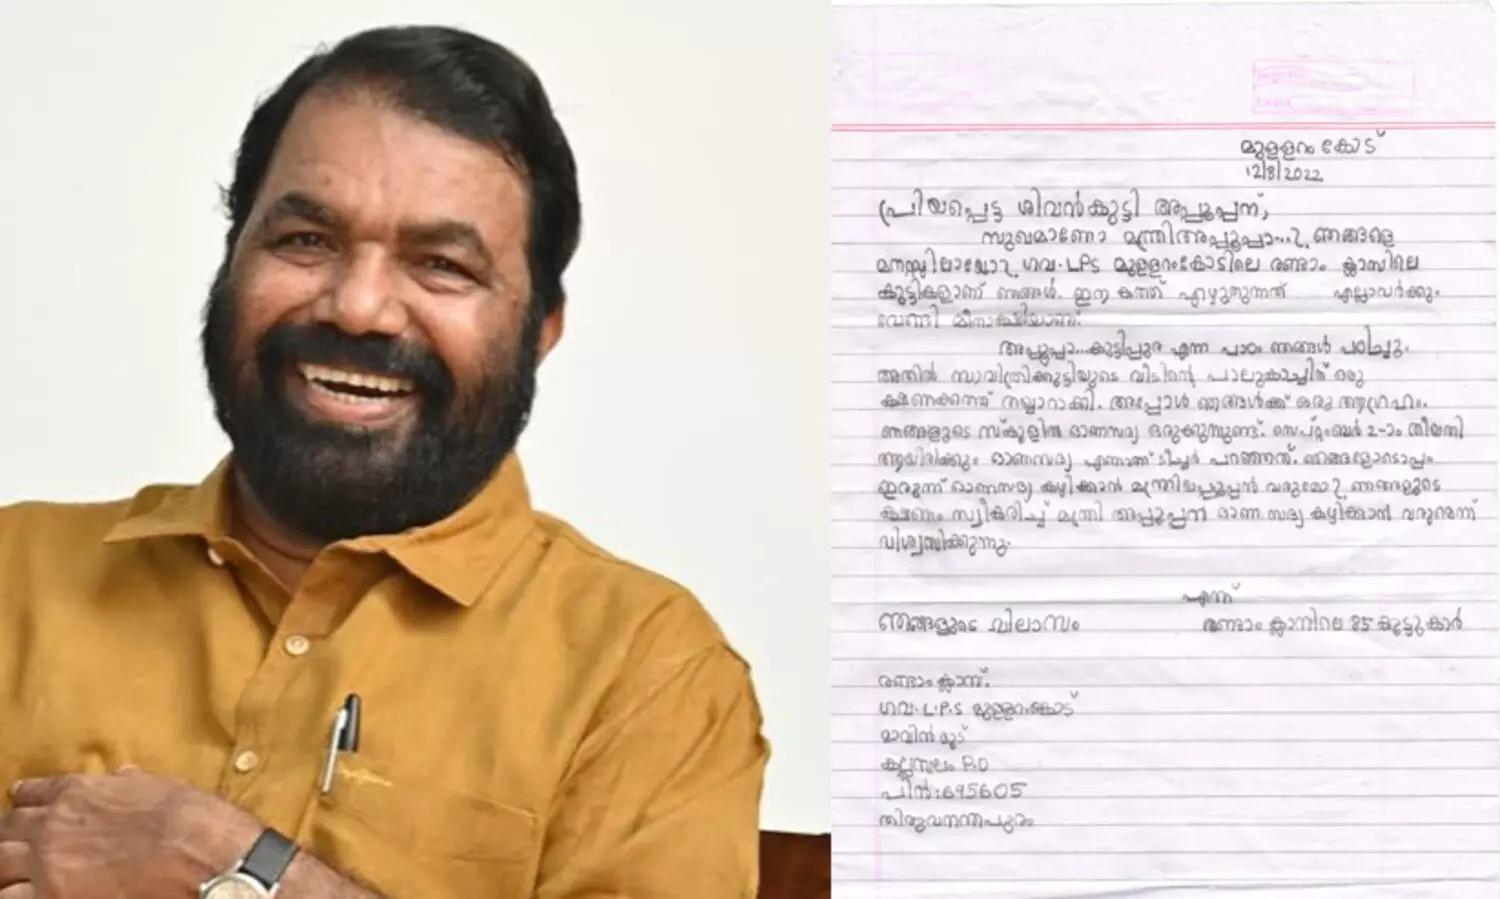 മുള്ളറംകോട്
12/8/2022
പ്രിയപ്പെട്ട ശിവൻകുട്ടി അപ്പൂപ്പന്,
സുഖമാണോ മന്ത്രിഅപ്പൂപ്പാ...?, ഞങ്ങളെ
മനസ്സിലായോ?, ഗവ.LPS മുള്ളറംകോടിലെ രണ്ടാം ക്ലാസിലെ
കുട്ടികളാണ് ഞങ്ങൾ. ഈ കത്ത് എഴുതുന്നത് എല്ലാവർക്കും
വേണ്ടി മീനാക്ഷിയാണ്.
അപ്പൂപ്പാ...കുട്ടിപ്പുര എന്ന പാഠം ഞങ്ങൾ പഠിച്ചു.
അതിൽ സാവിത്രിക്കുട്ടിയുടെ വീടിന്റെ പാലുകാച്ചിന് ഒരു
ക്ഷണക്കത്ത് തയ്യാറാക്കി. അപ്പോൾ ഞങ്ങൾക്ക് ഒരു ആഗ്രഹം.
ഞങ്ങളുടെ സ്കൂളിൽ ഓണസദ്യ ഒരുക്കുന്നുണ്ട്. സെപ്റ്റംബർ 2-ാം തീയതി
ആയിരിക്കും ഓണസദ്യ എന്നാണ് ടീച്ചർ പറഞ്ഞത്. ഞങ്ങളോടൊപ്പം
ഇരുന്ന് ഓണസദ്യ കഴിക്കാൻ മന്ത്രിയപ്പൂപ്പൻ വരുമോ?, ഞങ്ങളുടെ
ക്ഷണം സ്വീകരിച്ച് മന്ത്രി അപ്പൂപ്പൻ ഓണ സദ്യ കഴിക്കാൻ വരുമെന്ന്
വിശ്വസിക്കുന്നു.
എന്ന്
ഞങ്ങളുടെ വിലാസം രണ്ടാം ക്ലാസിലെ 85 കൂട്ടുകാർ
രണ്ടാംക്ലാസ്.
ഗവ.L.P.S മുള്ളറംകോട്
മാവിൻ മൂട്
കല്ലമ്പലം P.O
പിൻ:695605
തിരുവനന്തപുരം